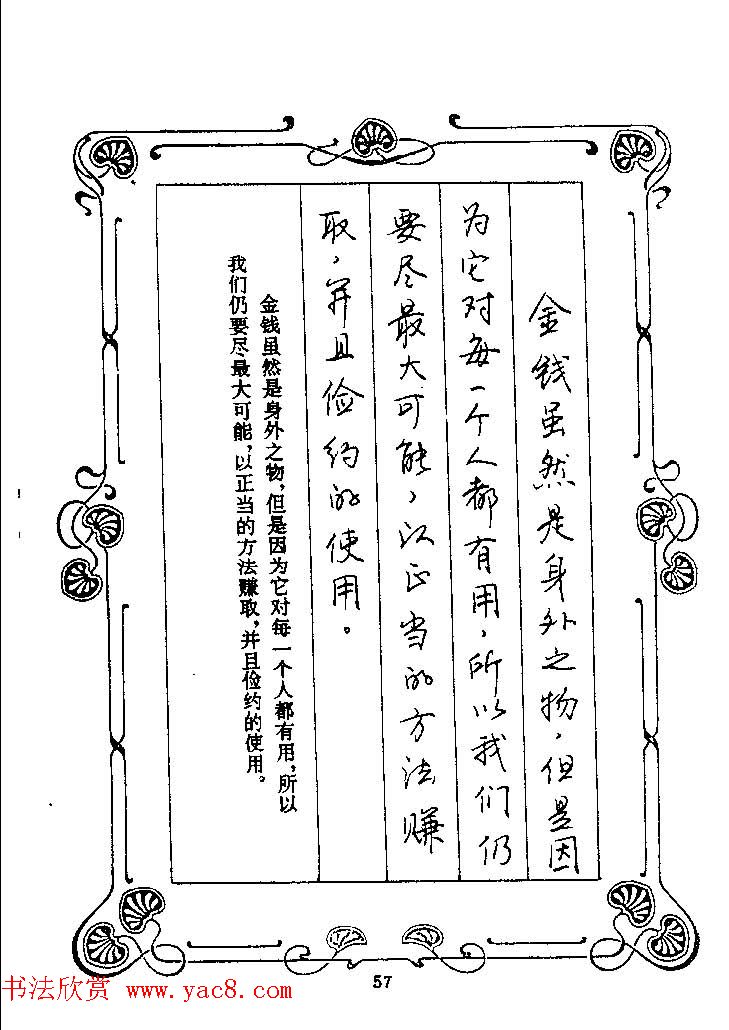 金钱虽然是身外之物，但是因
为它对每一个人都有用，所以我们仍
要尽最大可能，以正当的方法赚
取，并且俭约的使用。
金钱虽然是身外之物，但是因为它对每一个人都有用，所以
我们仍要尽最大可能，以正当的方法赚取，并且俭约的使用。
57
书法欣赏 www.yac8.com